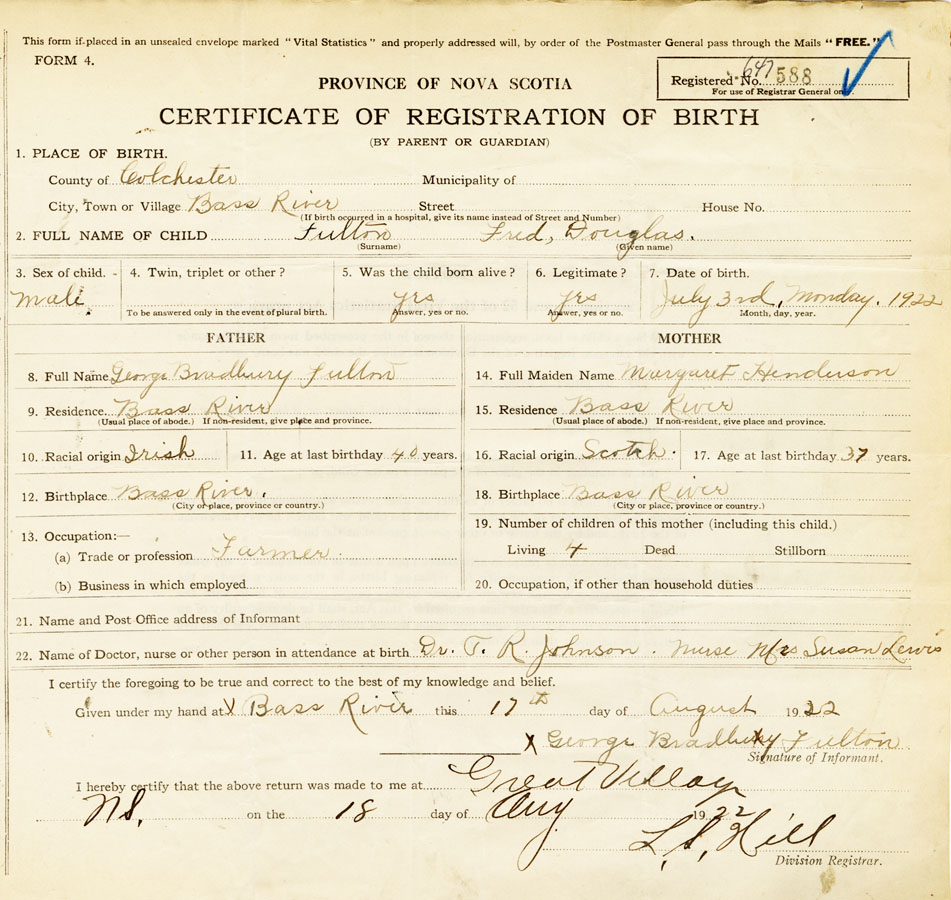 This form if placed in an unsealed envelope marked "Vital Statistics" and properly addressed will, by order of the Postmaster General pass through the Mails "FREE."
FORM 4.
Registered No. 647 588
For use of Registrar General only
PROVINCE OF NOVA SCOTIA
CERTIFICATE OF REGISTRATION OF BIRTH
(BY PARENT OR GUARDIAN)
1. PLACE OF BIRTH.
County of Colchester Municipality of
City, Town or Village Bass River Street House No.
(If birth occurred in a hospital, give its name instead of Street and Number)
2. FULL NAME OF CHILD Fulton Fred, Douglas.
(Surname) (Given name)
3. Sex of child. - 4. Twin, triplet or other? 5. Was the child born alive? 6. Legitimate? 7. Date of birth.
Male yes yes July 3rd, Monday. 1922
To be answered only in the event of plural birth. Answer, yes or no. Answer, yes or no. Month, day, year.
FATHER MOTHER
8. Full Name George Bradbury Fulton 14. Full Maiden Name Margaret Henderson
9. Residence Bass River 15. Residence Bass River
(Usual place of abode.) If non-resident, give place and province. (Usual place of abode.) If non-resident, give place and province.
10. Racial origin Irish 11. Age at last birthday 40 years. 16. Racial origin Scotch. 17. Age at last birthday 37 years.
12. Birthplace Bass River. 18. Birthplace Bass River
(City or place, province or country.) (City or place, province or country.)
13. Occupation:— 19. Number of children of this mother (including this child.)
(a) Trade or profession Farmer. Living 4 Dead Stillborn
(b) Business in which employed 20. Occupation, if other than household duties
21. Name and Post Office address of Informant
22. Name of Doctor, nurse or other person in attendance at birth Dr. T. R. Johnson. Nurse Mrs Susan Lewis
I certify the foregoing to be true and correct to the best of my knowledge and belief.
Given under my hand at X Bass River this 17th day of August 1922
X George Bradbury Fulton
Signature of Informant.
I hereby certify that the above return was made to me at Great Village
NS. on the 18 day of Aug 1922
L. S. Hill
Division Registrar.